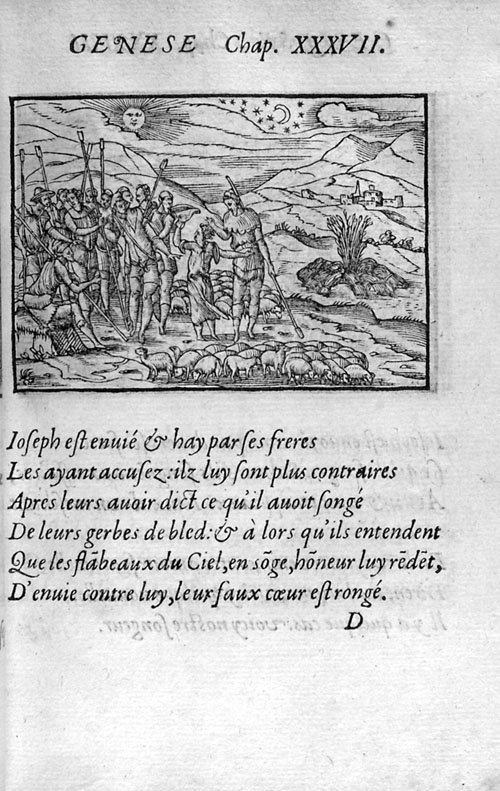 GENESE Chap. XXXVII.
Ioseph est enuié & hay par ses freres
Les ayant accusez: ilz luy sont plus contraires
Apres leurs auoir dict ce qu'il auoit songé
De leurs gerbes de bled: & à lors qu'ils entendent
Que les flābeaux du Ciel, en sōge, hōneur luy rēdēt,
D'enuie contre luy, leur faux cœur est rongé.
D